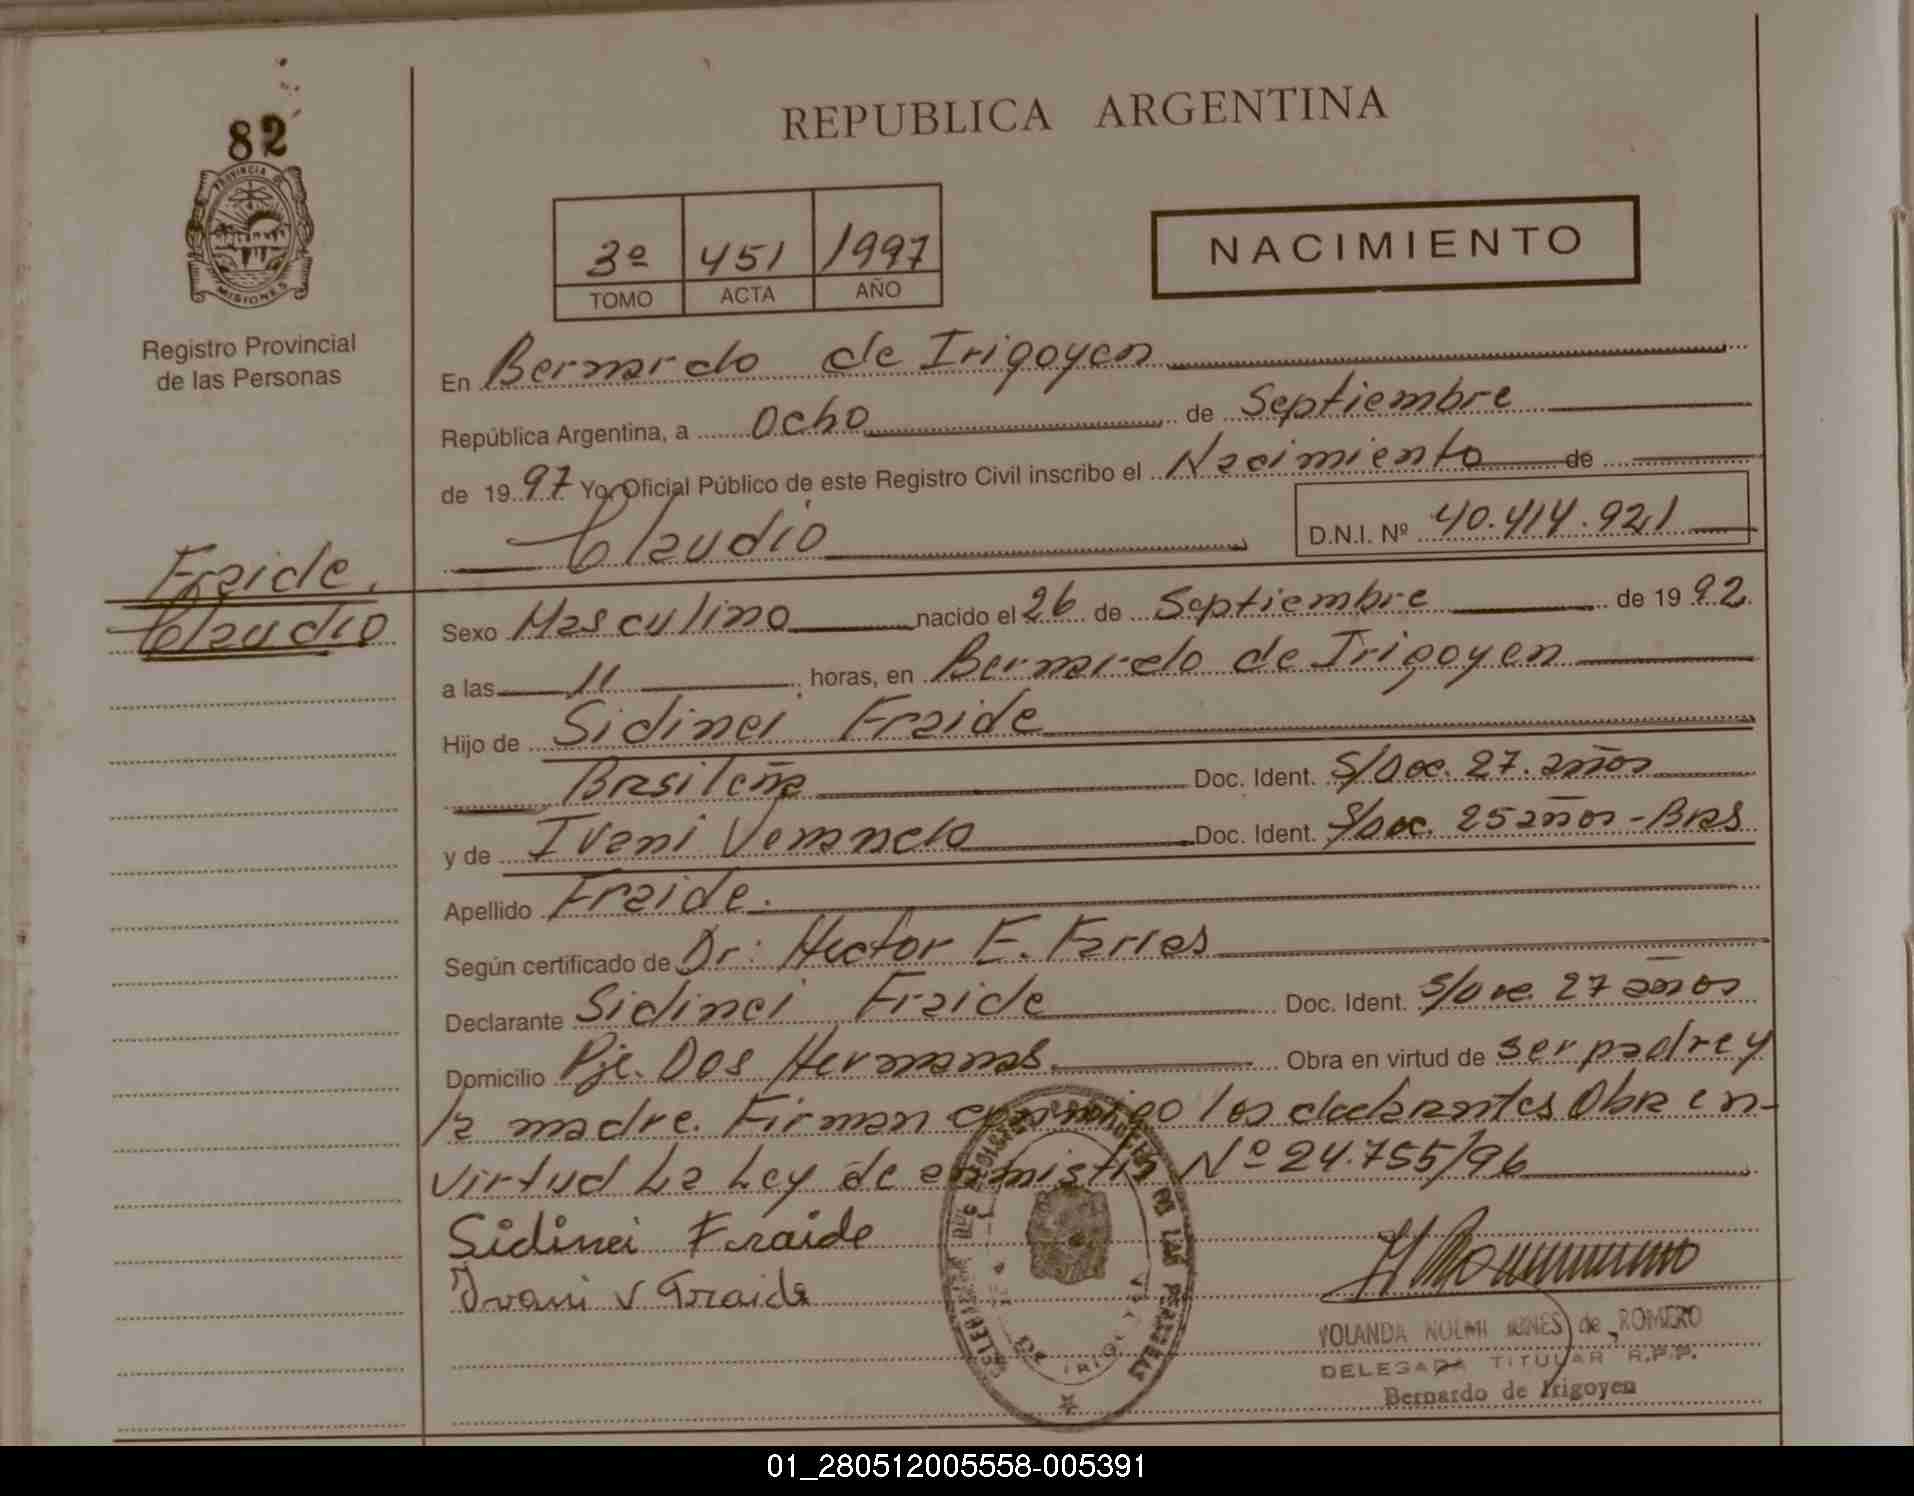 82
PROVINCIA DE
MISIONES
Registro Provincial
de las Personas
Fraide,
Claudio
REPUBLICA ARGENTINA
3º 451 1997
TOMO ACTA AÑO
NACIMIENTO
En Bernardo de Irigoyen
República Argentina, a Ocho de Septiembre
de 1997 Yo, Oficial Público de este Registro Civil inscribo el Nacimiento de
Claudio D.N.I. Nº 40.414.921
Sexo Masculino nacido el 26 de Septiembre de 1992
a las 11 horas, en Bernardo de Irigoyen
Hijo de Sidinei Fraide
Brasileña Doc. Ident. S/Doc. 27. años
y de Ivani Doc. Ident. S/Doc. 25 años - Bras
Apellido Fraide.
Según certificado de Dr: Hector E. Farias
Declarante Sidinei Fraide Doc. Ident. S/Doc. 27 años
Domicilio Pje. Dos Hermanas. Obra en virtud de ser padre y
la madre. Firman conmigo los declarantes Obra en
virtud La Ley de amnistia Nº 24.755/96
Sidinei Fraide
Ivani V Fraide
YOLANDA de ROMERO
DELEGADA TITULAR R.P.P.
Bernardo de Irigoyen
01_280512005558-005391